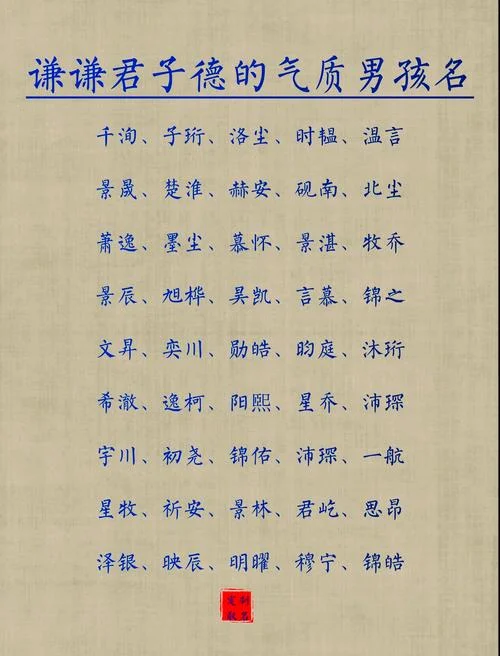 谦谦君子德的气质男孩名
千洵、子珩、洛尘、时韫、温言
景晟、楚淮、赫安、砚南、北尘
萧逸、墨尘、慕怀、景湛、牧乔
景辰、旭桦、昊凯、言慕、锦之
文昇、奕川、勋皓、昀庭、沐珩
希澈、逸柯、阳熙、星乔、沛琛
宇川、初尧、锦佑、沛琛、一航
星牧、祈安、景林、君屹、思昂
泽银、映辰、明曜、穆宁、锦皓
定制
取名